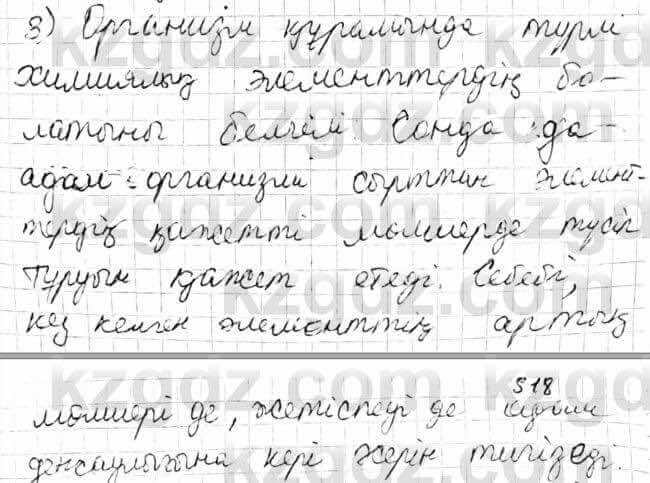 3) Организм құрамында түрлі
химиялық элементтердің бо-
латыны белгілі. Сонда да-
адам организмі сырттан элемент-
тердің қажетті мөлшерде түсіп
тұруын қажет етеді. Себебі,
кез келген элементтің артық
318
мөлшері де, жетіспеуі де адам
денсаулығына кері әсерін тигізеді.
kzgdz.com